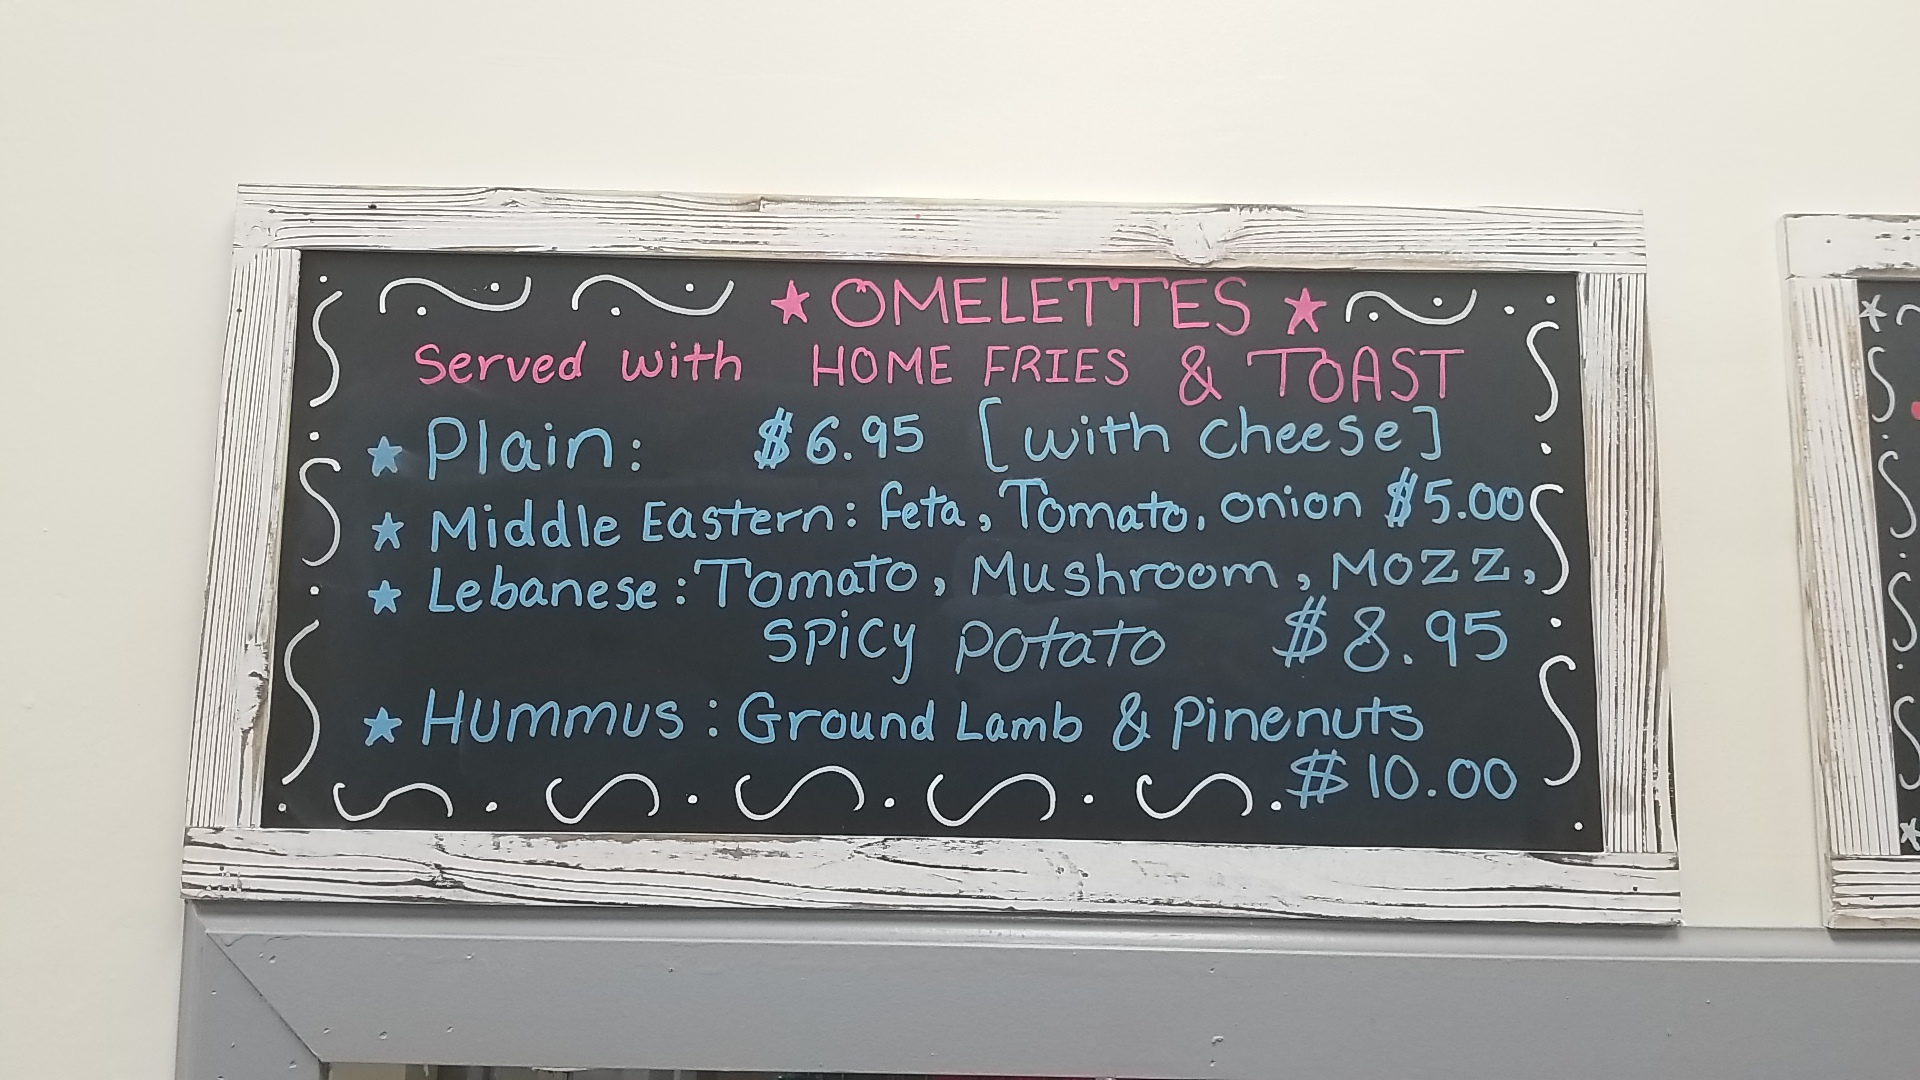 ★ OMELETTES ★
Served with HOME FRIES & TOAST
★ Plain: $6.95 [with cheese]
★ Middle Eastern: feta, Tomato, onion $5.00
★ Lebanese: Tomato, Mushroom, MOZZ,
SPiCY POtatO $8.95
★ HUMMUS: Ground Lamb & Pinenuts
$10.00